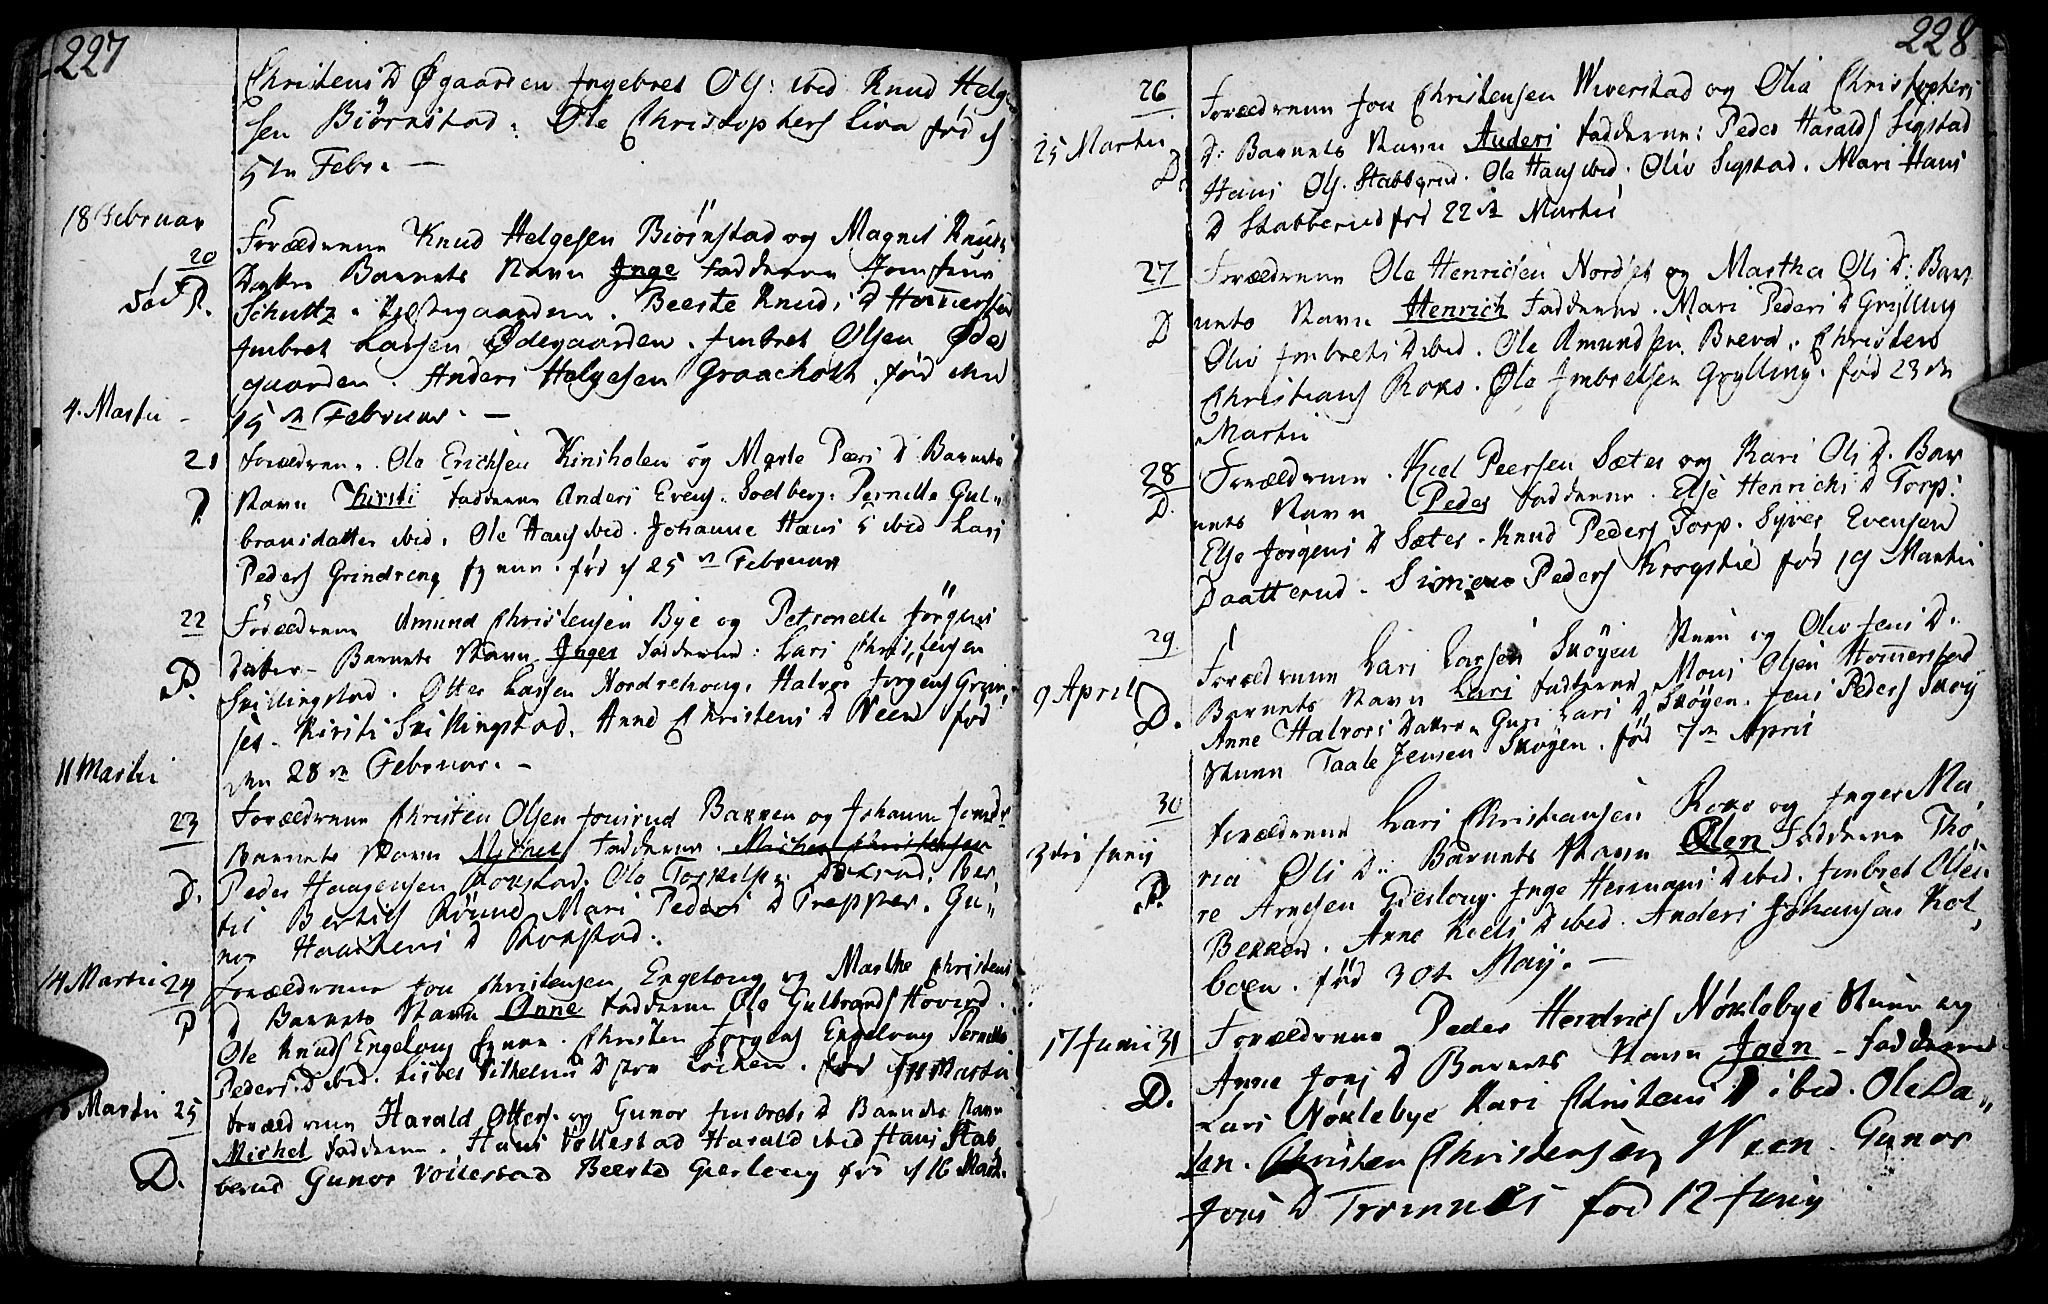 227
Christens D Øgaarden Ingebret Ols: ibid Knud Helge
sen Biørnstad: Ole Christophers Lira fød d
5te Febr. —
18 Februar
20
Forældrene Knud Helgesen Biørnstad og Magnil Knuds
Datter Barnets Navn Inge Fadderne Jomfrue
Schultz. Beerte Knuds D Hammerstad
Imbret Larsen Ødegaarden. Imbret Olsen Øde
gaarden. Anders Helgesen Graacholt. fød den
15 de Februar. —
4. Martii -
21
D.
Forældrene. Ole Erichsen Kinsholen og Marte Peers D Barnets
Navn Kirsti Fadderne Anders Evens. Soelberg. Pernille Gul
bransdatter ibid. Ole Hans ibid. Johanne Hans D ibid Lars
Peders Grindreng fød d 25 de Februar
22
D.
Forældrene Amund Christensen Bye og Petronelle Jörgens
datter - Barnets Navn Inger Fadderne: Lars Christensen
Skillingstad. Otter Larsen Nordrehoug. Halvor Jorgens Grim
set. Kirsti Skillingstad. Anne Christens D Neem fød
den 28 de Februar. -
11 Martii
23
D.
Forældrene Christen Olsen Jonsrud Bakken og Johanne Jons D
Barnets Navn Michel Fadderne. Michel Christensen
Peder Haagensen Rokstad. Ole Torkels. Ber
til Bertils Röune Mari Peders D Trepper. Gu
nor Haachens D Rokstad.
14 Martii 24
D
Forældrene Jon Christensen Engeloug og Marthe Christens
D Barnets Navn Anne Fadderne Ole Gulbrands Hoverud.
Ole Knuds Engeloug Christen Jörgens Engeloug Pernille
Peders D ibid. Lisbet Vilhelms D fra Löchen. fød Martii
Martii 25
D.
Forældrene Harald Otters. og Gunor Imbrets D Barnets Navn
Michel Fadderne. Hans Vollestad Harald ibid Hans Stab
berud Gunor Vollestad Beerte Gierloug fød d 16 Marti.
228
26
25 Martii
D.
Forældrene Jon Christensen Wiverstad og Olia Christophers
D: Barnets Navn Anders Fadderne: Peder Haralds Sigstad
Hans Ols. Stabberud. Ole Hans ibid. Oliv Sigstad. Mari Hans
D Stabberud fød 22 de Martii
27
D
Forældrene Ole Henricsen Nordset og Martha Ols D: Bar
nets Navn Henrich Fadderne. Mari Peders D Grylling
Oliv Imbrets D ibid. Ole Amundsen. Brevd. Christen
Christians Roko. Ole Imbretsen Grylling. fød 23 de
Martii
28
D.
Forældrene. Kiel Peersen Sæter og Kari Ols D. Bar
nets Navn Peder Fadderne. Else Henrichs D Torp.
Else Jörgens D Sæter. Knud Peders Torp. Syver Evensen
Daatterud. Simen Peders Krogstie fød 19 Martii
29
9 April
D.
Forældrene Lars Larsen Skøyen og Oliv Jens D.
Barnets Navn Lars Fadderne Mons Olsen Hammerstad
Anne Halvors Datter. Guri Lars D Skøyen. Jens Peders Skøy
Taale Jensen Skøyen. fød 7de April
30
3die Junij
D.
Forældrene Lars Christiansen Roko og Inger Ma
ria Ols D.. Barnets Navn Olen Fadderne Tho
re Arnesen Gierloug. Inge Hermans D ibid. Imbret Olsen
Bekken. Anne Kiels D ibid. Anders Johansen Kol
boen. fød 30t Maij. —
17 Junii 31
D.
Forældrene Peder Hendrics Nøklebye og
Anne Jons D Barnets Navn Joen - Fadderne
Lars Nöklebye Kari Christens D ibid. Ole Da
len. Christen Christensen Neen. Gunor
Jons D Tromnes fød 12 Junij